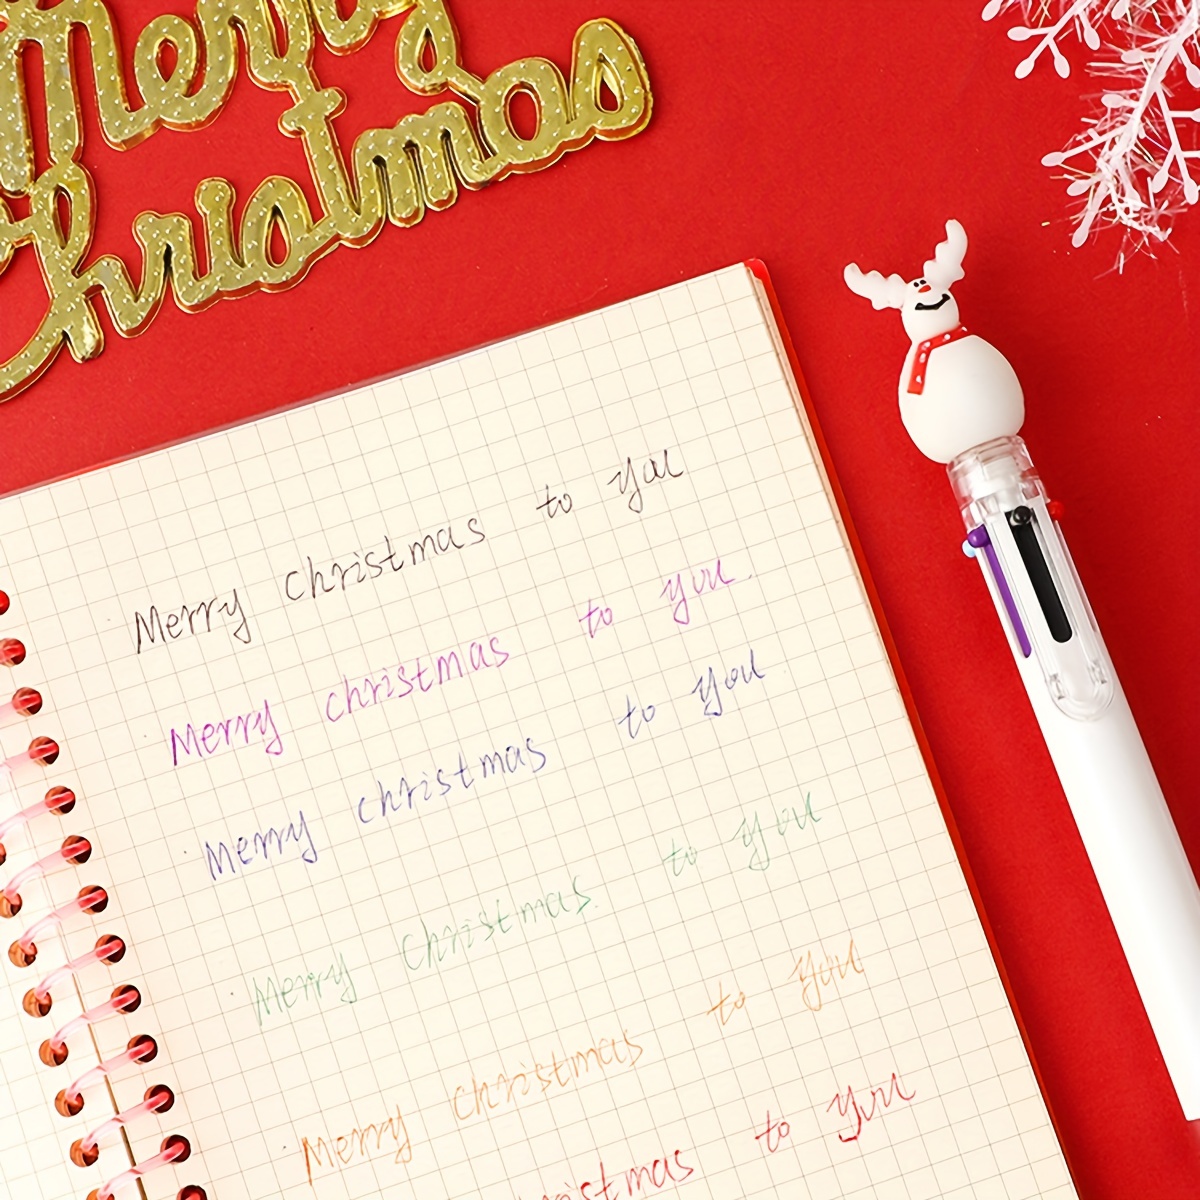 Merry
Christmas
Merry Christmas to you
Merry christmas to you.
Merry christmas to you
Merry Christmas. to you
Merry christmas to you
christmas to you